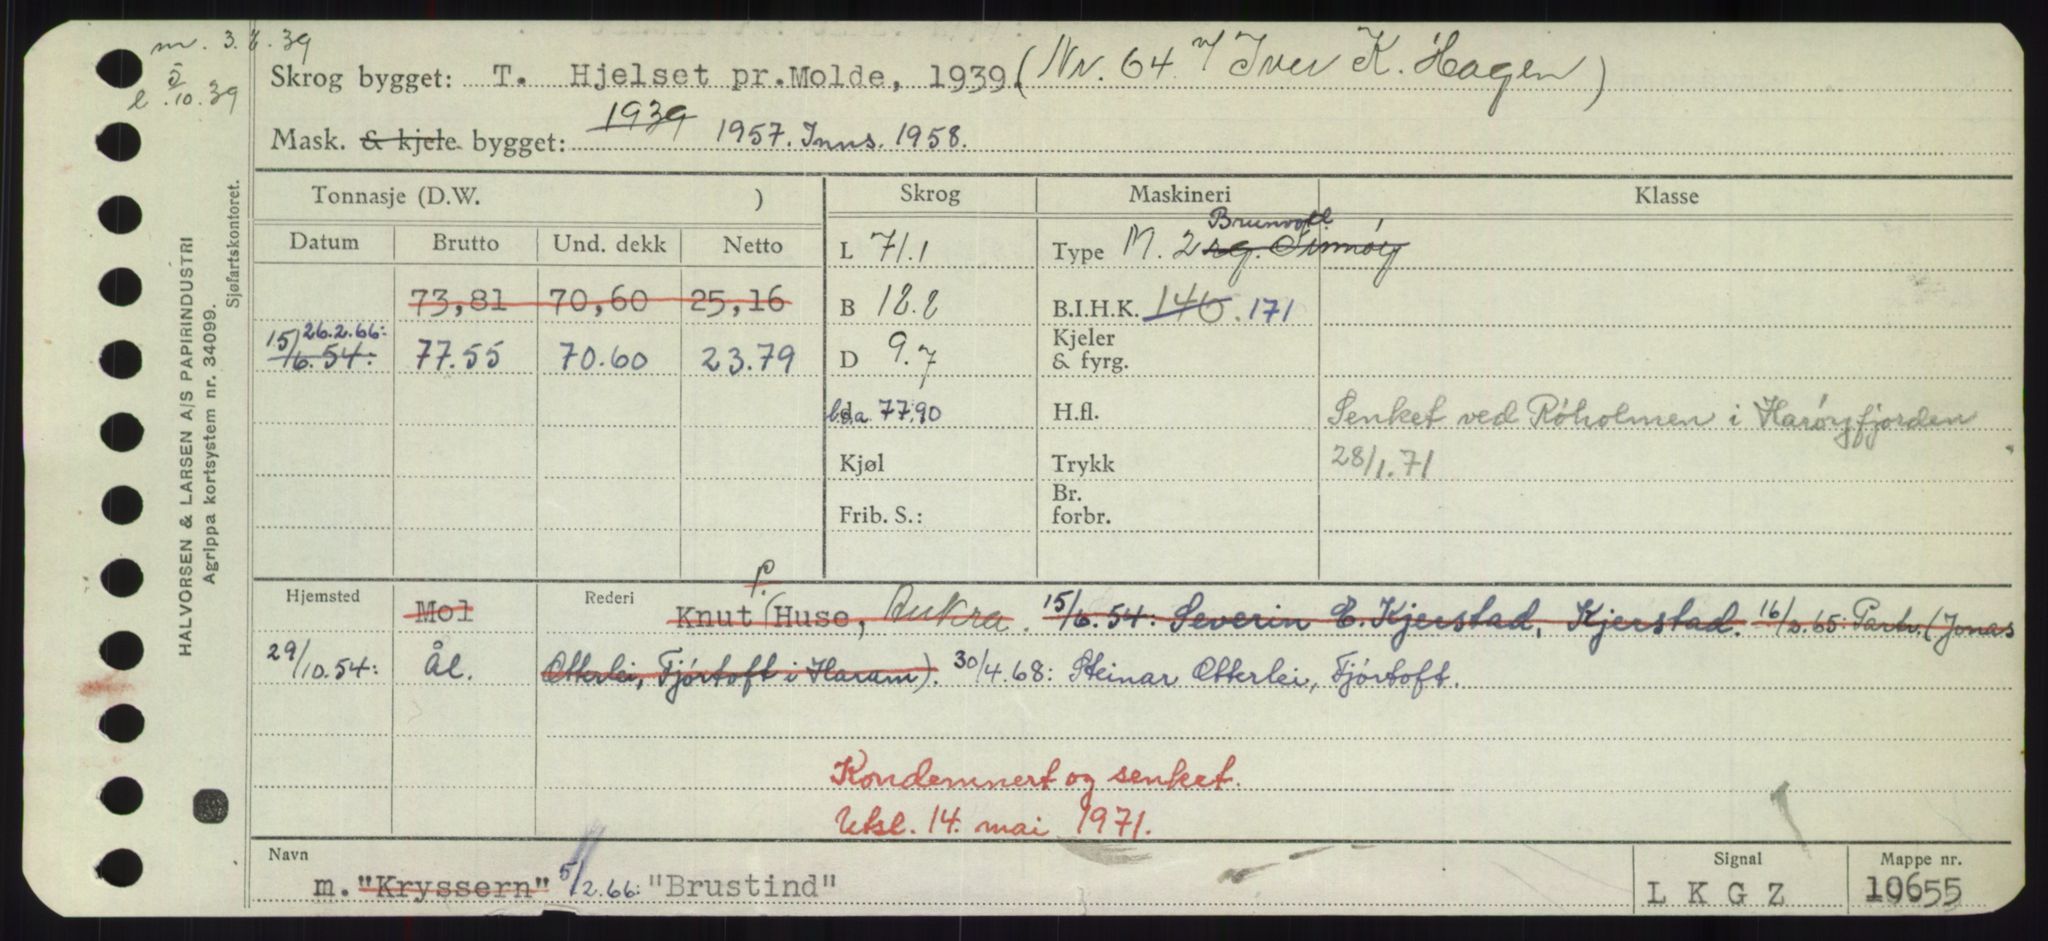 m. 3.6.39
l. 5/10.39
Skrog bygget: T. Hjelset pr.Molde, 1939. (Nr. 64 v/ Iver K. Hagen)
Mask. & kjele bygget: 1939 1957. Inns. 1958.
Tonnasje (D.W. ) Skrog Maskineri Klasse
Datum Brutto Und. dekk Netto
L 71.1 Type M. 2 sg. Finnøy Brunvoll
73,81 70,60 25,16 B 18.8 B.I.H.K. 140. 171
15/6.54: 26.2.66: 77.55 70.60 23.79 D 9.7 Kjeler & fyrg.
l.o.a. 77.90 H.fl. Senket ved Røholmen i Harøyfjorden
Kjøl Trykk 28/1.71
Frib. S.: Br. forbr.
Hjemsted Mol Rederi Knut P. Huse, Aukra. 15/6.54: Severin E. Kjerstad, Kjerstad. 16/2.65: Partr. (Jonas
29/10.54: Ål. Otterlei, Fjørtoft i Haram). 30/4.68: Steinar Otterlei, Fjørtoft.
Kondemnert og senket.
Utsl. 14. mai 1971.
Navn Signal Mappe nr.
m. "Kryssern" 5/2.66: "Brustind" L K G Z 10655
HALVORSEN & LARSEN A/S PAPIRINDUSTRI
Agrippa kortsystem nr. 34099.
Sjøfartskontoret.